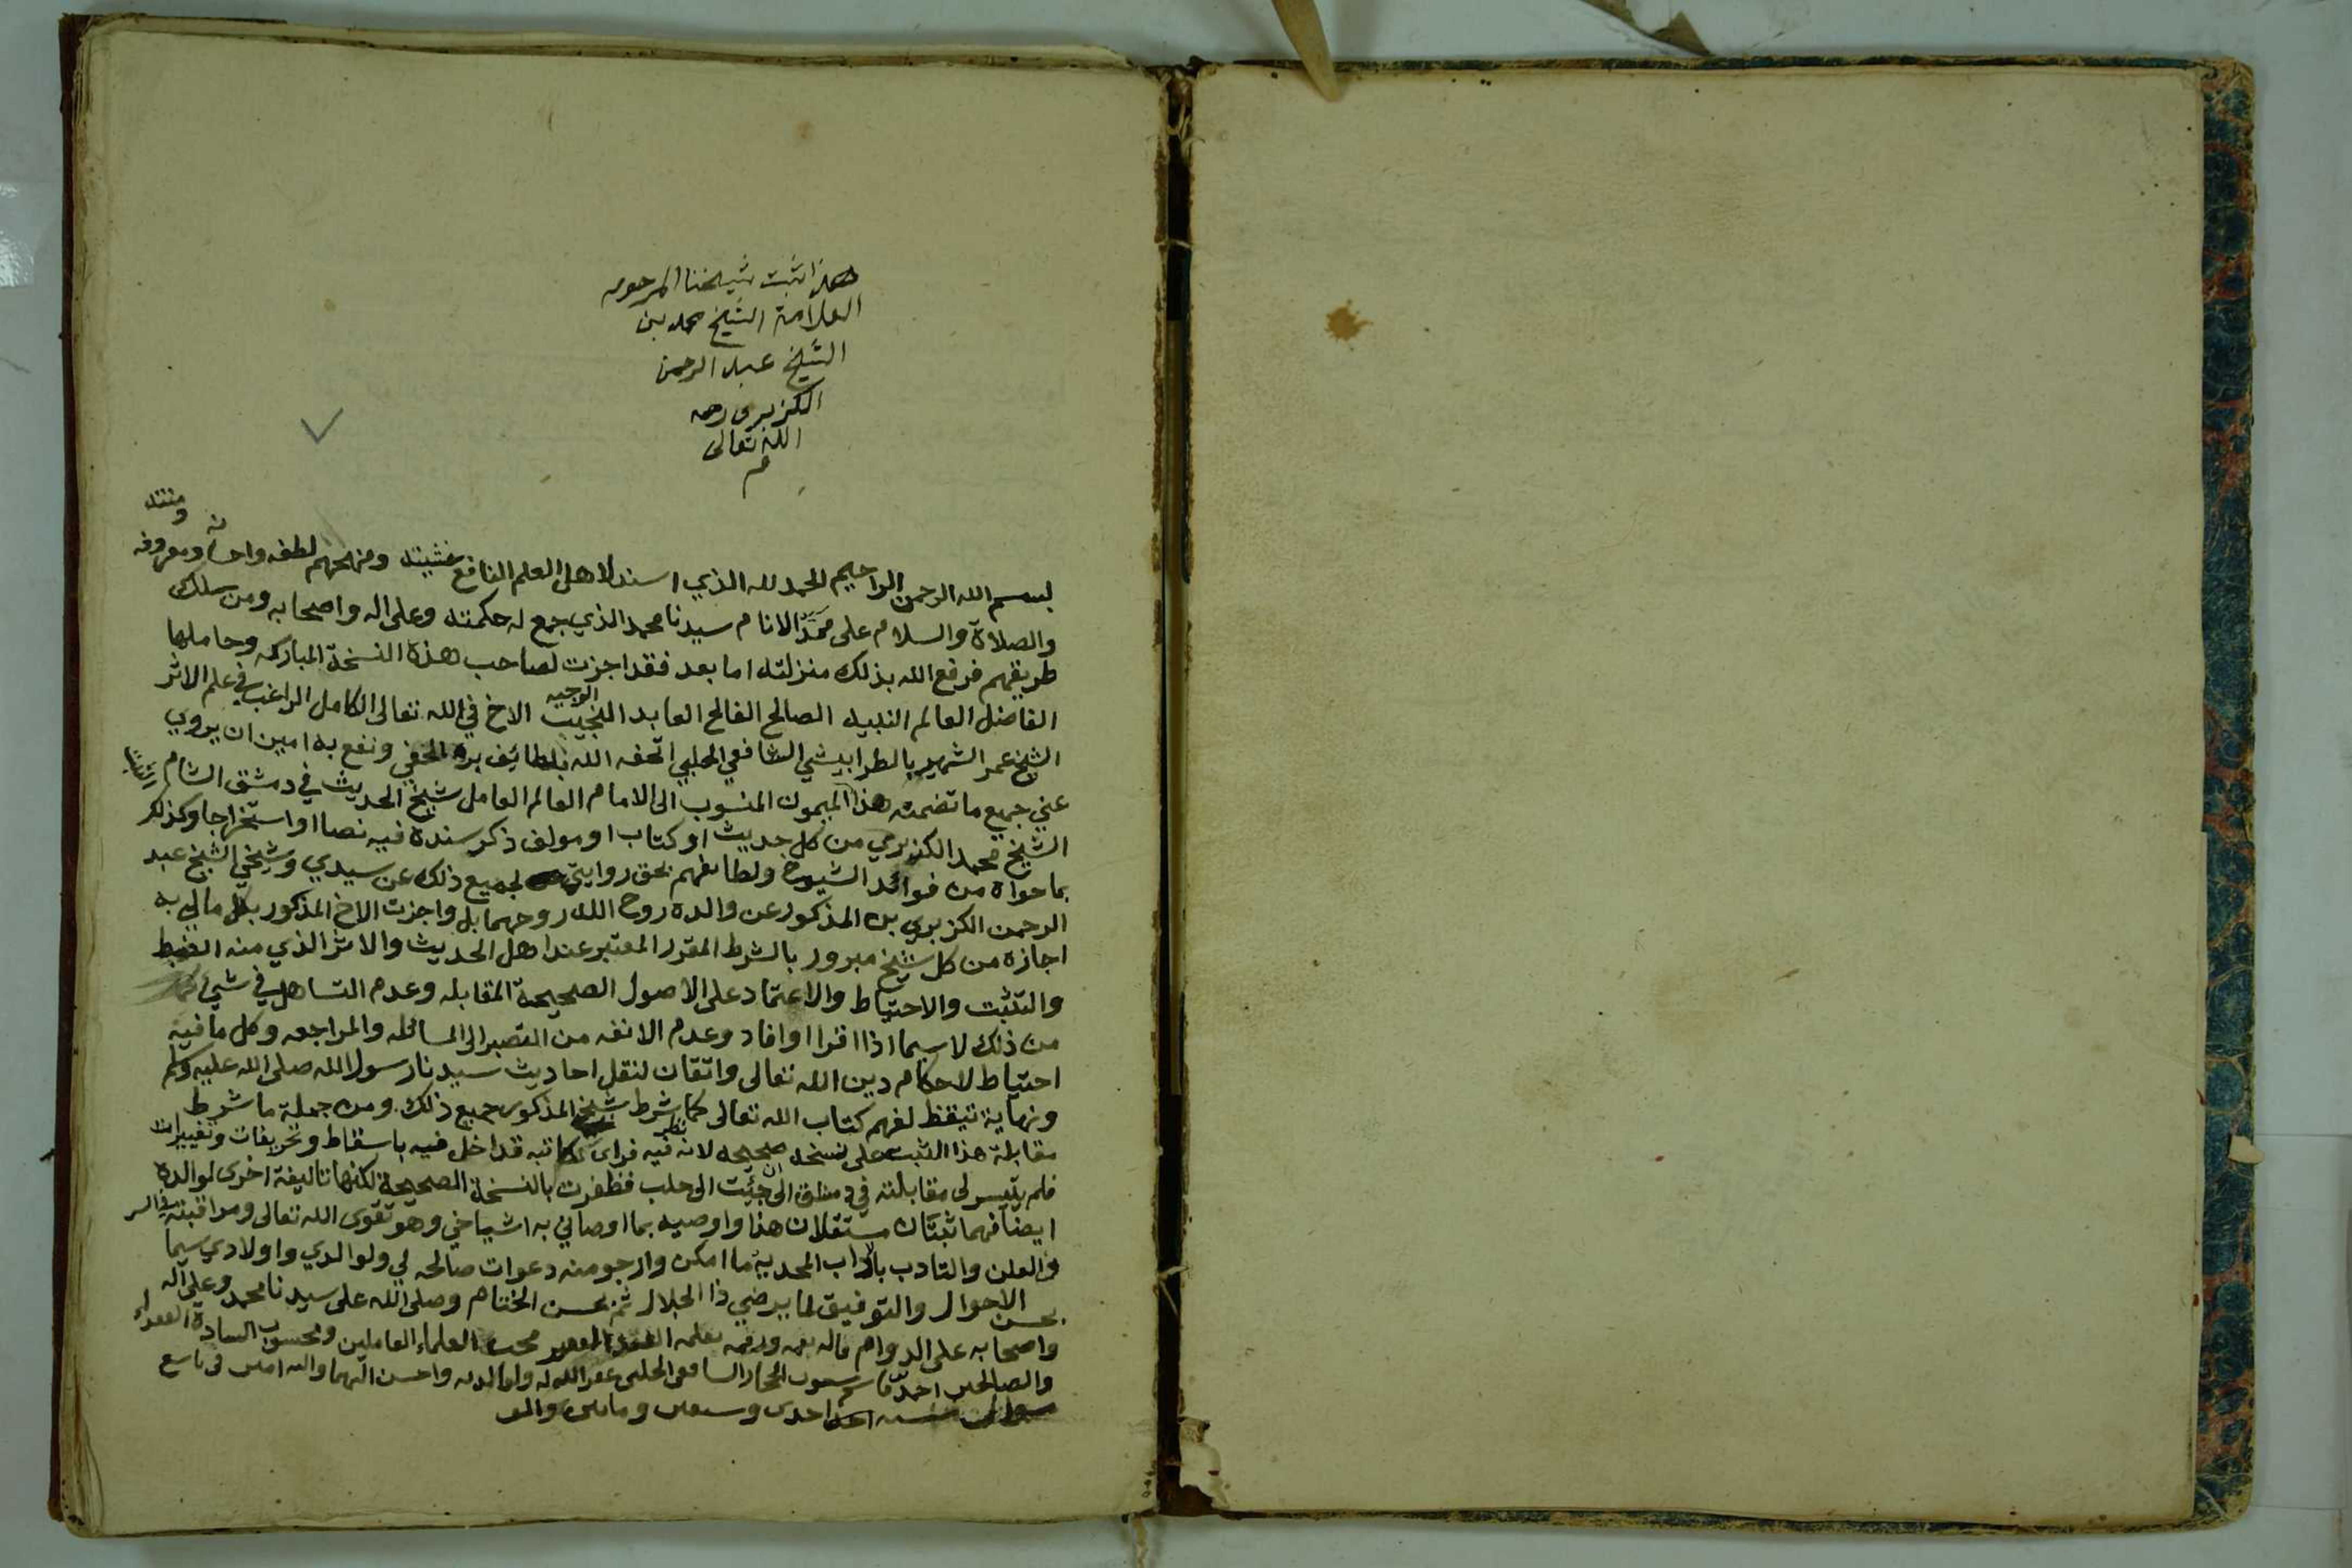 هذا ثبت شيخنا المرحوم
العلامة الشيخ محمد بن
الشيخ عبد الرحمن
الكزبري رحمه
الله تعالى
م
بسم الله الرحمن الراحيم الحمد لله الذي اسند لاهل العلم النافع خشيته ومنحهم لطفه واحسانه ومعروفه ومنته
والصلاة والسلام على ممد الانام سيدنا محمد الذي جمع له حكمته وعلى اله واصحابه ومن سلك
طريقهم فرفع الله بذلك منزلته اما بعد فقد اجزت لصاحب هذه النسخة المباركه وحاملها
الفاضل العالم النبيه الصالح الفالح العابد النجيب الوجيه الاخ في الله تعالى الكامل الراغب في علم الاثر
الشيخ عمر الشهير بالطرابيشي الشافعي الحلبي اتحفه الله بلطايف بره الخفي ونفع به امين ان يروي
عني جميع ما تضمنه هذا الميمون المنسوب الى الامام العالم العامل شيخ الحديث في دمشق الشام
الشيخ محمد الكزبري من كل حديث او كتاب او مولف ذكر سنده فيه نصا او استخراجا وكذلك
بما حواه من فوائد الشيوخ ولطائفهم بحق روايتي لجميع ذلك عن سيدي وشيخي الشيخ عبد
الرحمن الكزبري بن المذكور عن والده روح الله روحهما بل واجزت الاخ المذكور بكل مالي به
اجازه من كل شيخ مبرور بالشرط المقرر المعتبر عند اهل الحديث والاثر الذي منه الضبط
والتثبت والاحتياط والاعتماد على الاصول الصحيحة المقابله وعدم التساهل في شيء
من ذلك لا سيما اذا اقرا او افاد وعدم الانفه من التصبر الى المسائله والمراجعه وكل ما فيه
احتياط لاحكام دين الله تعالى واتقان لنقل احاديث سيدنا رسول الله صلى الله عليه وسلم
ونهاية تيقظ لفهم كتاب الله تعالى كما شرط شيخ المذكور جميع ذلك ومن جملة ما شرط
مقابلة هذا الثبت على نسخه صحيحه لانه نظر فيه فراى كاتبه قد اخل فيه باسقاط وتحريفات وتغييرات
فلم يتيسر لي مقابلته في دمشق الى ان جئت الى حلب فظفرت بالنسخة الصحيحة لكنها تاليفة اخرى لوالده
ايضا فهما ثبتان مستقلان هذا واوصيه بما اوصاني به اشياخي وهو تقوى الله تعالى ومراقبته في السر
والعلن والتادب بالاداب المحمدية ما امكن وارجو منه دعوات صالحه لي ولوالدي واولادي سيما
بحسن الاحوال والتوفيق لما يرضي ذا الجلال ثم بحسن الختام وصلى الله على سيدنا محمد وعلى آله
واصحابه على الدوام قاله بفمه ورقمه بقلمه الفقير محب العلماء العاملين ومحسوب السادة الفقراء
والصالحين احمد الحجار الشافعي الحلبي غفر الله له ولوالديه واحسن اليهما واليه امين في تاسع
شوال سنه احدى وسبعين ومائتين والف